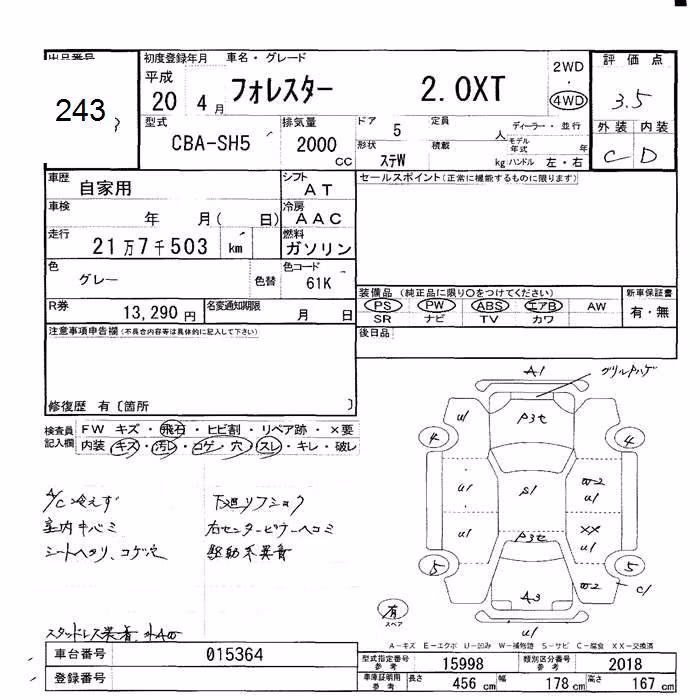 出品番号
243
初度登録年月 車名・グレード
平成 20 4月
フォレスター 2.0XT
2WD
4WD
評価点
3.5
外装 内装
C D
型式 CBA-SH5
排気量 2000 CC
ドア 5
形状 ステW
定員 人
積載 kg
ディーラー・並行
モデル年式 年
ハンドル 左・右
車歴 自家用
シフト AT
車検 年 月( 日)
冷房 AAC
走行 21万7千503 km
燃料 ガソリン
色 グレー 色替
色コード 61K
R券 13,290円
名変通知期限 月 日
セールスポイント(正常に機能するものに限ります)
装備品(純正品に限り〇をつけてください)
PS PW ABS エアB AW
SR ナビ TV カワ
新車保証書
有・無
後日品
注意事項申告欄(不具合内容等は具体的に記入して下さい)
修復歴 有〔箇所 〕
検査員記入欄
FW キズ・飛石・ヒビ割・リペア跡・×要
内装・キズ・汚レ・コゲ・穴・スレ・キレ・破レ
A/C冷えず
室内キバミ
シートヘタリ、コゲ穴
下廻リフショク
右センターピラーヘコミ
駆動系異音
スタッドレス装着
A1
グリルハゲ
U1
P3t
4
4
U1
S1
W2
U1
U1
P3t
XX
U1
5
5
A3
W2
C1
U1
有
スペア
A-キズ E-エクボ U-凹み W-補修跡 S-サビ C-腐食 XX-交換済
車台番号 015364
登録番号
型式指定番号 参考 15998
類別区分番号 参考 2018
車庫証明用 参考 長さ 456 cm 幅 178 cm 高さ 167 cm